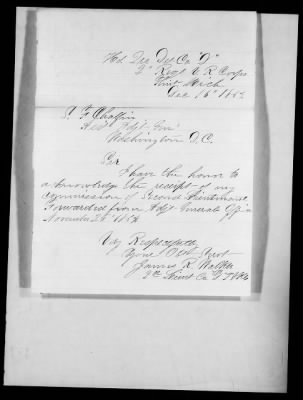 Hd Qrs Det Co "D"
2d Regt V. R. Corps
Flint Mich
Dec 16th 186
S. F. Chalfin
Asst Adjt Genl
Washington D.C.
Sir
I have the honor to
acknowledge the receipt of my
commission of Second Lieutenant
Forwarded from Adjt Generals Office
November 28
Very Respectfully
Your Obt Servt
James R. Walter
2d Lieut Co D